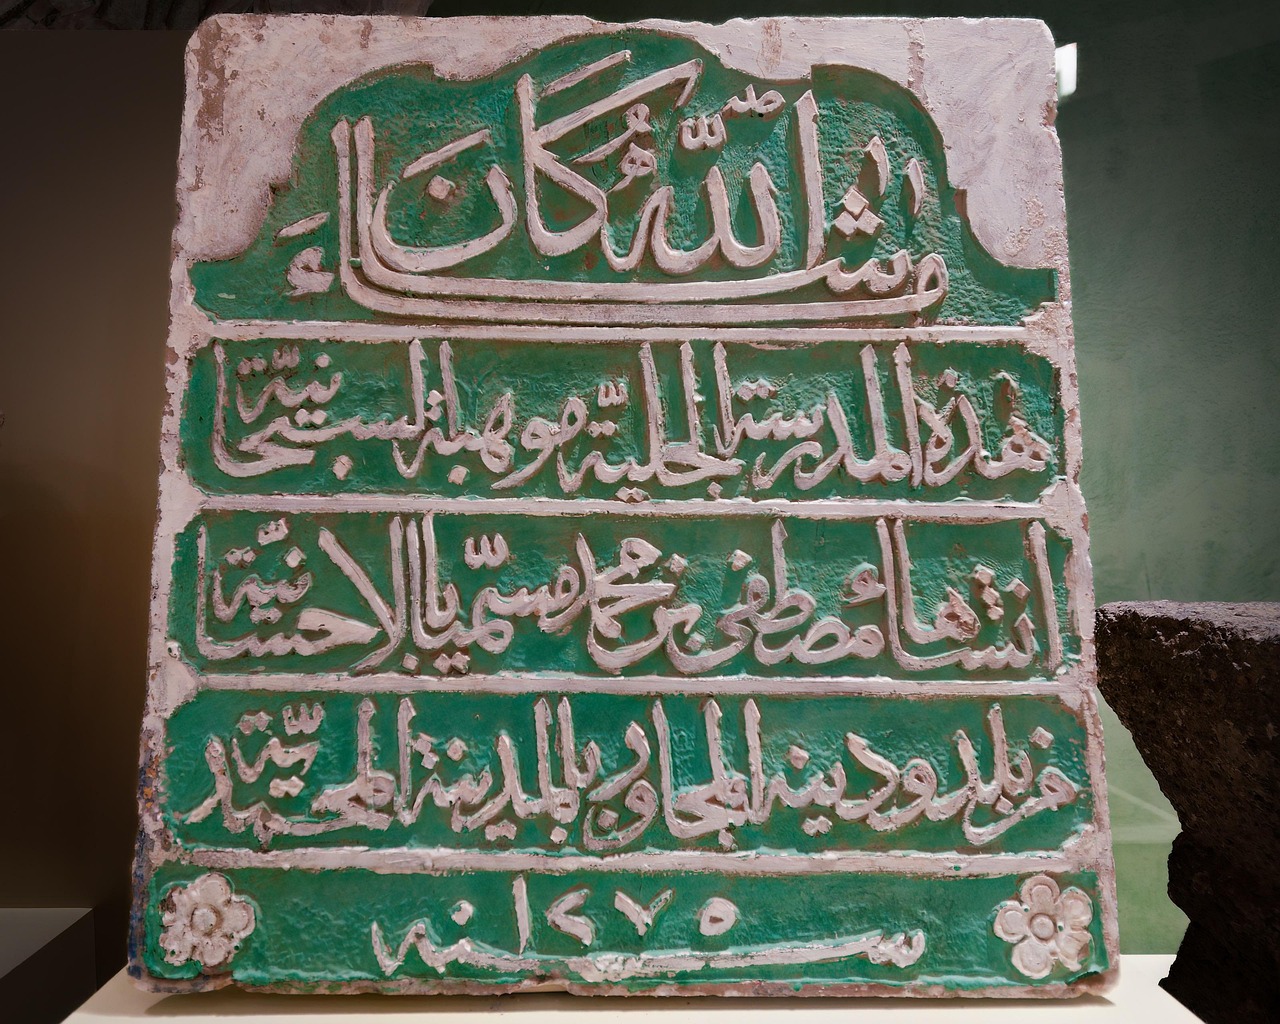 ما شاء الله كان
هذه المدرسة الجلية موهبة السبحانية
انشاها مصطفى بن محمد مسمى بالاحسانية
من بلد ودينه المجاور بالمدينة المحمدية
سنه ١٢٧٥